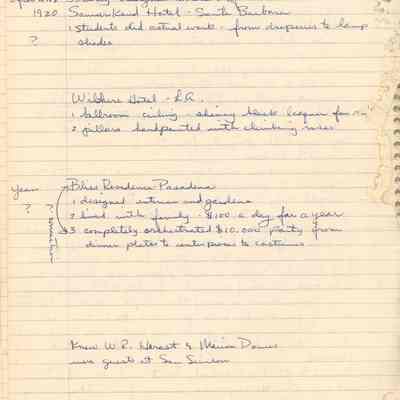 1920 Samarkand Hotel - Santa Barbara
? 1 students did actual work - from draperies to lamp
shades
Wilshire Hotel - L.A.
1 ballroom ceiling - shiney black lacquer
2 pillars handpainted with climbing roses
Year Bliss Residence Pasadena
? 1 designed interior and gardens
2 lived with family - $100 a day for a year
3 completely orchestrated $10,000 party from
dinner plates to centerpieces to costumes
Knew W.R. Hearst & Marion Davies
were guests at San Simeon